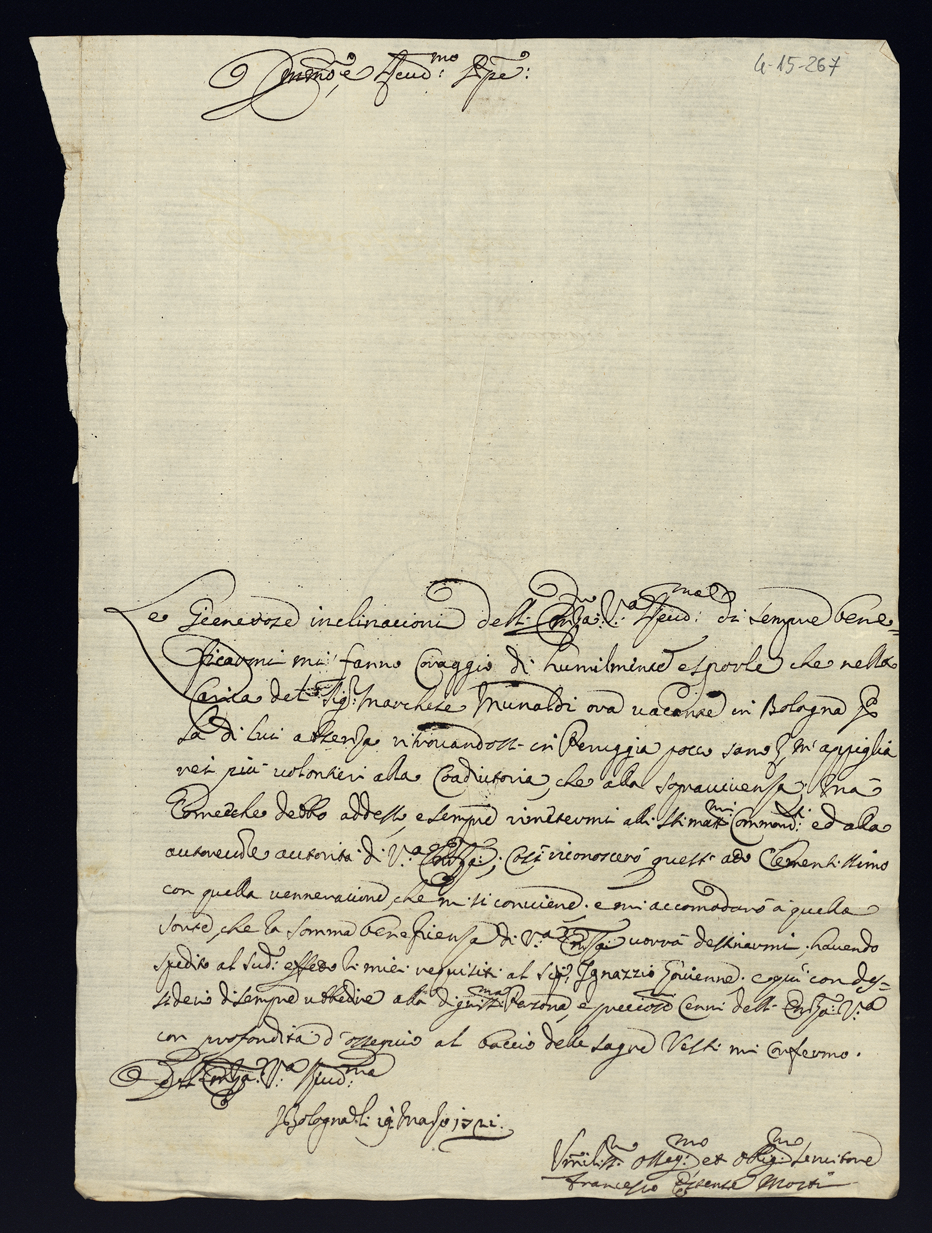 4-15-267
Emmo e Reud.mo Spe:
Le Genevoze inclinacioni dell. Emza: V.a Reud.ma di sempre bene=
ficarmi mi fanno Coraggio di humilmente esporle che nella
Carica del Sig.r Marchese Munaldi ora vacante in Bologna p
la di lui absenza ritrovandosi in Peruggia poco sano, m'appiglia
rei più volontieri alla Coadiutoria, che alla sopravivenza, mà
Comeche debbo addesso, e sempre rimetermi alli stimat.mi Commend.ti ed alla
autorevole autorità di V.a Emza:, Così riconoscerò questi atto Clementissimo
con quella venneracione, che mi si conviene. e mi accomodarò à quella
sorte, che la somma beneficenza di V.a Emza: vorrà destinarmi, havendo
spedito al sud.o effetto li miei requisiti al Sig.r Ignazzio e qui con de=
siderio di sempre ubbedire alla dignis.ma Persona, e preciosi Cenni dell. Emza: V.a
con profondità d'ossequio al baccio delle sagre Vesti mi Confermo.
Dell. Emza. V.a Reud.ma
Bologna li 19 Marso 1721.
Vmilis.mo osseq.mo et oblig.mo servitore
Francesco Morti